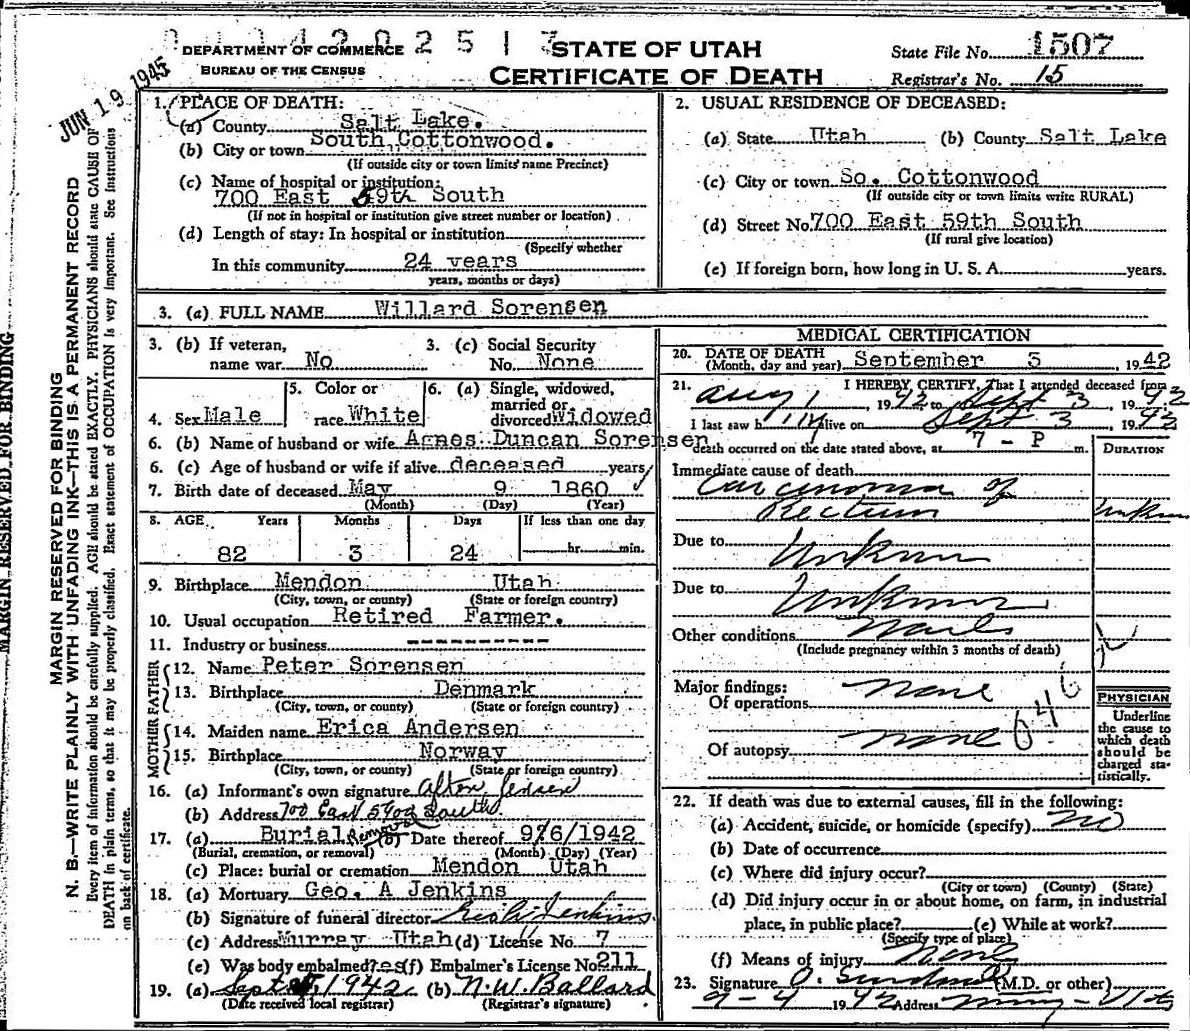 DEPARTMENT OF COMMERCE
BUREAU OF THE CENSUS
STATE OF UTAH
CERTIFICATE OF DEATH
State File No. 1507
Registrar's No. 15
JUN 19 1945
MARGIN RESERVED FOR BINDING
MARGIN RESERVED FOR BINDING
N. B.—WRITE PLAINLY WITH UNFADING INK—THIS IS A PERMANENT RECORD
Every item of information should be carefully supplied. AGE should be stated EXACTLY. PHYSICIANS should state CAUSE OF
DEATH in plain terms, so that it may be properly classified. Exact statement of OCCUPATION is very important. See instructions
on back of certificate.
1. PLACE OF DEATH:
(a) County Salt Lake.
(b) City or town South Cottonwood.
(If outside city or town limits name Precinct)
(c) Name of hospital or institution:
700 East 59th South
(If not in hospital or institution give street number or location)
(d) Length of stay: In hospital or institution
(Specify whether
In this community 24 years
years, months or days)
2. USUAL RESIDENCE OF DECEASED:
(a) State Utah (b) County Salt Lake
(c) City or town So. Cottonwood
(If outside city or town limits write RURAL)
(d) Street No. 700 East 59th South
(If rural give location)
(e) If foreign born, how long in U. S. A. years.
3. (a) FULL NAME Willard Sorensen
3. (b) If veteran, name war No
3. (c) Social Security No. None
4. Sex Male
5. Color or race White
6. (a) Single, widowed, married or divorced Widowed
6. (b) Name of husband or wife Agnes Duncan Sorensen
6. (c) Age of husband or wife if alive deceased years
7. Birth date of deceased May 9 1860
(Month) (Day) (Year)
8. AGE Years Months Days If less than one day
82 3 24 hr. min.
9. Birthplace Mendon Utah
(City, town, or county) (State or foreign country)
10. Usual occupation Retired Farmer.
11. Industry or business ----------
FATHER
12. Name Peter Sorensen
13. Birthplace Denmark
(City, town, or county) (State or foreign country)
MOTHER
14. Maiden name Erica Andersen
15. Birthplace Norway
(City, town, or county) (State or foreign country)
16. (a) Informant's own signature Alton Jensen
(b) Address 700 East 5900 South
17. (a) Burial Removal (b) Date thereof 9/6/1942
(Burial, cremation, or removal) (Month) (Day) (Year)
(c) Place: burial or cremation Mendon Utah
18. (a) Mortuary Geo. A Jenkins
(b) Signature of funeral director Jenkins
(c) Address Murray Utah (d) License No. 7
(e) Was body embalmed? Yes (f) Embalmer's License No. 211
19. (a) Sept 1942 (b) N. W. Ballard
(Date received local registrar) (Registrar's signature)
MEDICAL CERTIFICATION
20. DATE OF DEATH
(Month, day and year) September 3, 1942
21. I HEREBY CERTIFY, That I attended deceased from
Aug 1, 1942 to Sept 3 1942
I last saw h im alive on Sept 3, 1942
death occurred on the date stated above, at 7 - P m.
DURATION
Immediate cause of death
Carcinoma of
Rectum
Due to Unknown
Due to Unknown
Other conditions
(Include pregnancy within 3 months of death)
Major findings:
Of operations none
Of autopsy none
046
PHYSICIAN
Underline
the cause to
which death
should be
charged sta-
tistically.
22. If death was due to external causes, fill in the following:
(a) Accident, suicide, or homicide (specify) no
(b) Date of occurrence
(c) Where did injury occur?
(City or town) (County) (State)
(d) Did injury occur in or about home, on farm, in industrial
place, in public place? (e) While at work?
(Specify type of place)
(f) Means of injury None
23. Signature (M.D. or other)
9-4 1942 Address